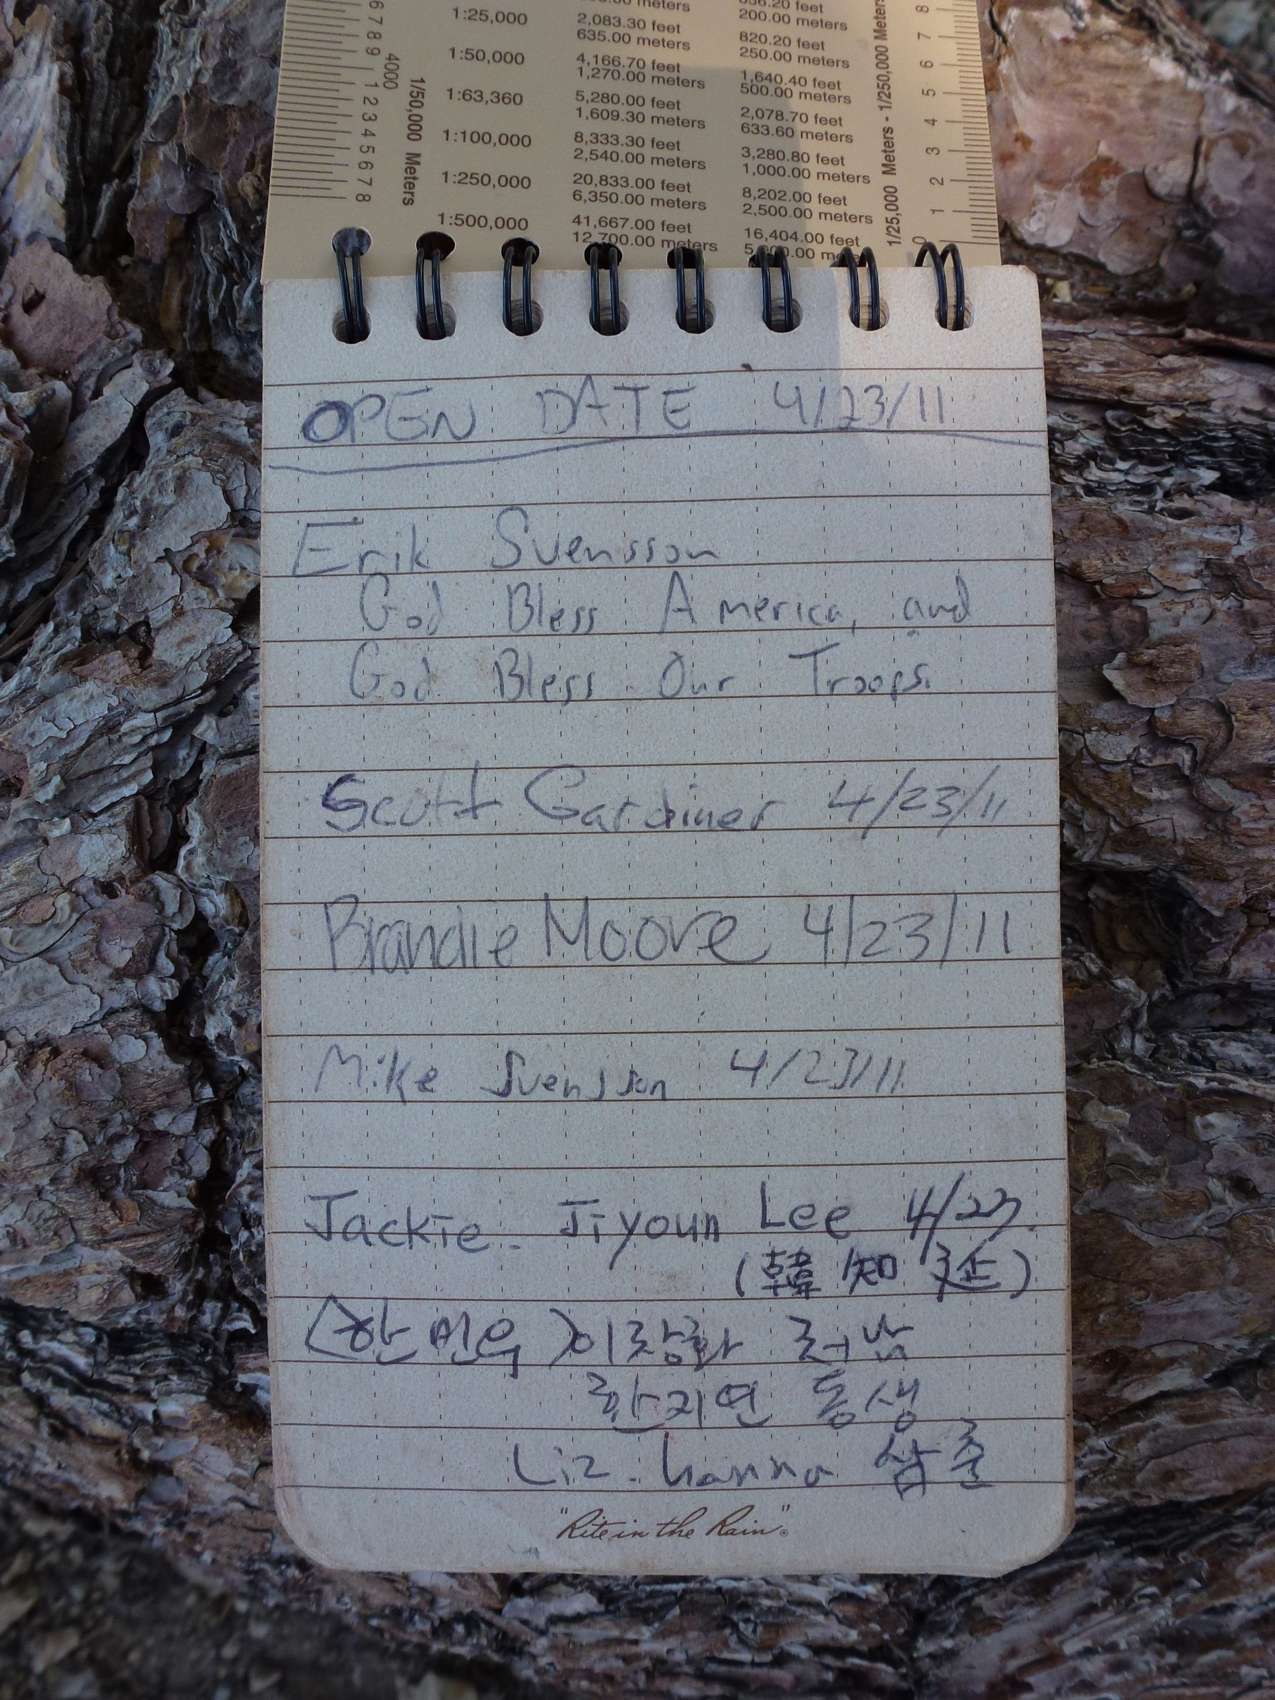 6 7 8 9 4000 1 2 3 4 5 6 7 8
1/50,000 Meters
1:25,000 2,083.30 feet 820.20 feet
635.00 meters 250.00 meters
1:50,000 4,166.70 feet 1,640.40 feet
1,270.00 meters 500.00 meters
1:63,360 5,280.00 feet 2,078.70 feet
1,609.30 meters 633.60 meters
1:100,000 8,333.30 feet 3,280.80 feet
2,540.00 meters 1,000.00 meters
1:250,000 20,833.00 feet 8,202.00 feet
6,350.00 meters 2,500.00 meters
1:500,000 41,667.00 feet 16,404.00 feet
12,700.00 meters
200.00 meters
1/25,000 Meters - 1/250,000 Meters
8 7 6 5 4 3 2 1 0
OPEN DATE 4/23/11
Erik Svensson
God Bless America, and
God Bless Our Troops.
Scott Gardiner 4/23/11
Brandie Moore 4/23/11
Mike Svensson 4/23/11
Jackie. Jiyoun Lee 4/23.
(韓 知 延)
(한 민욱)
한지연 동생
Liz. hanna 삼촌
"Rite in the Rain"®